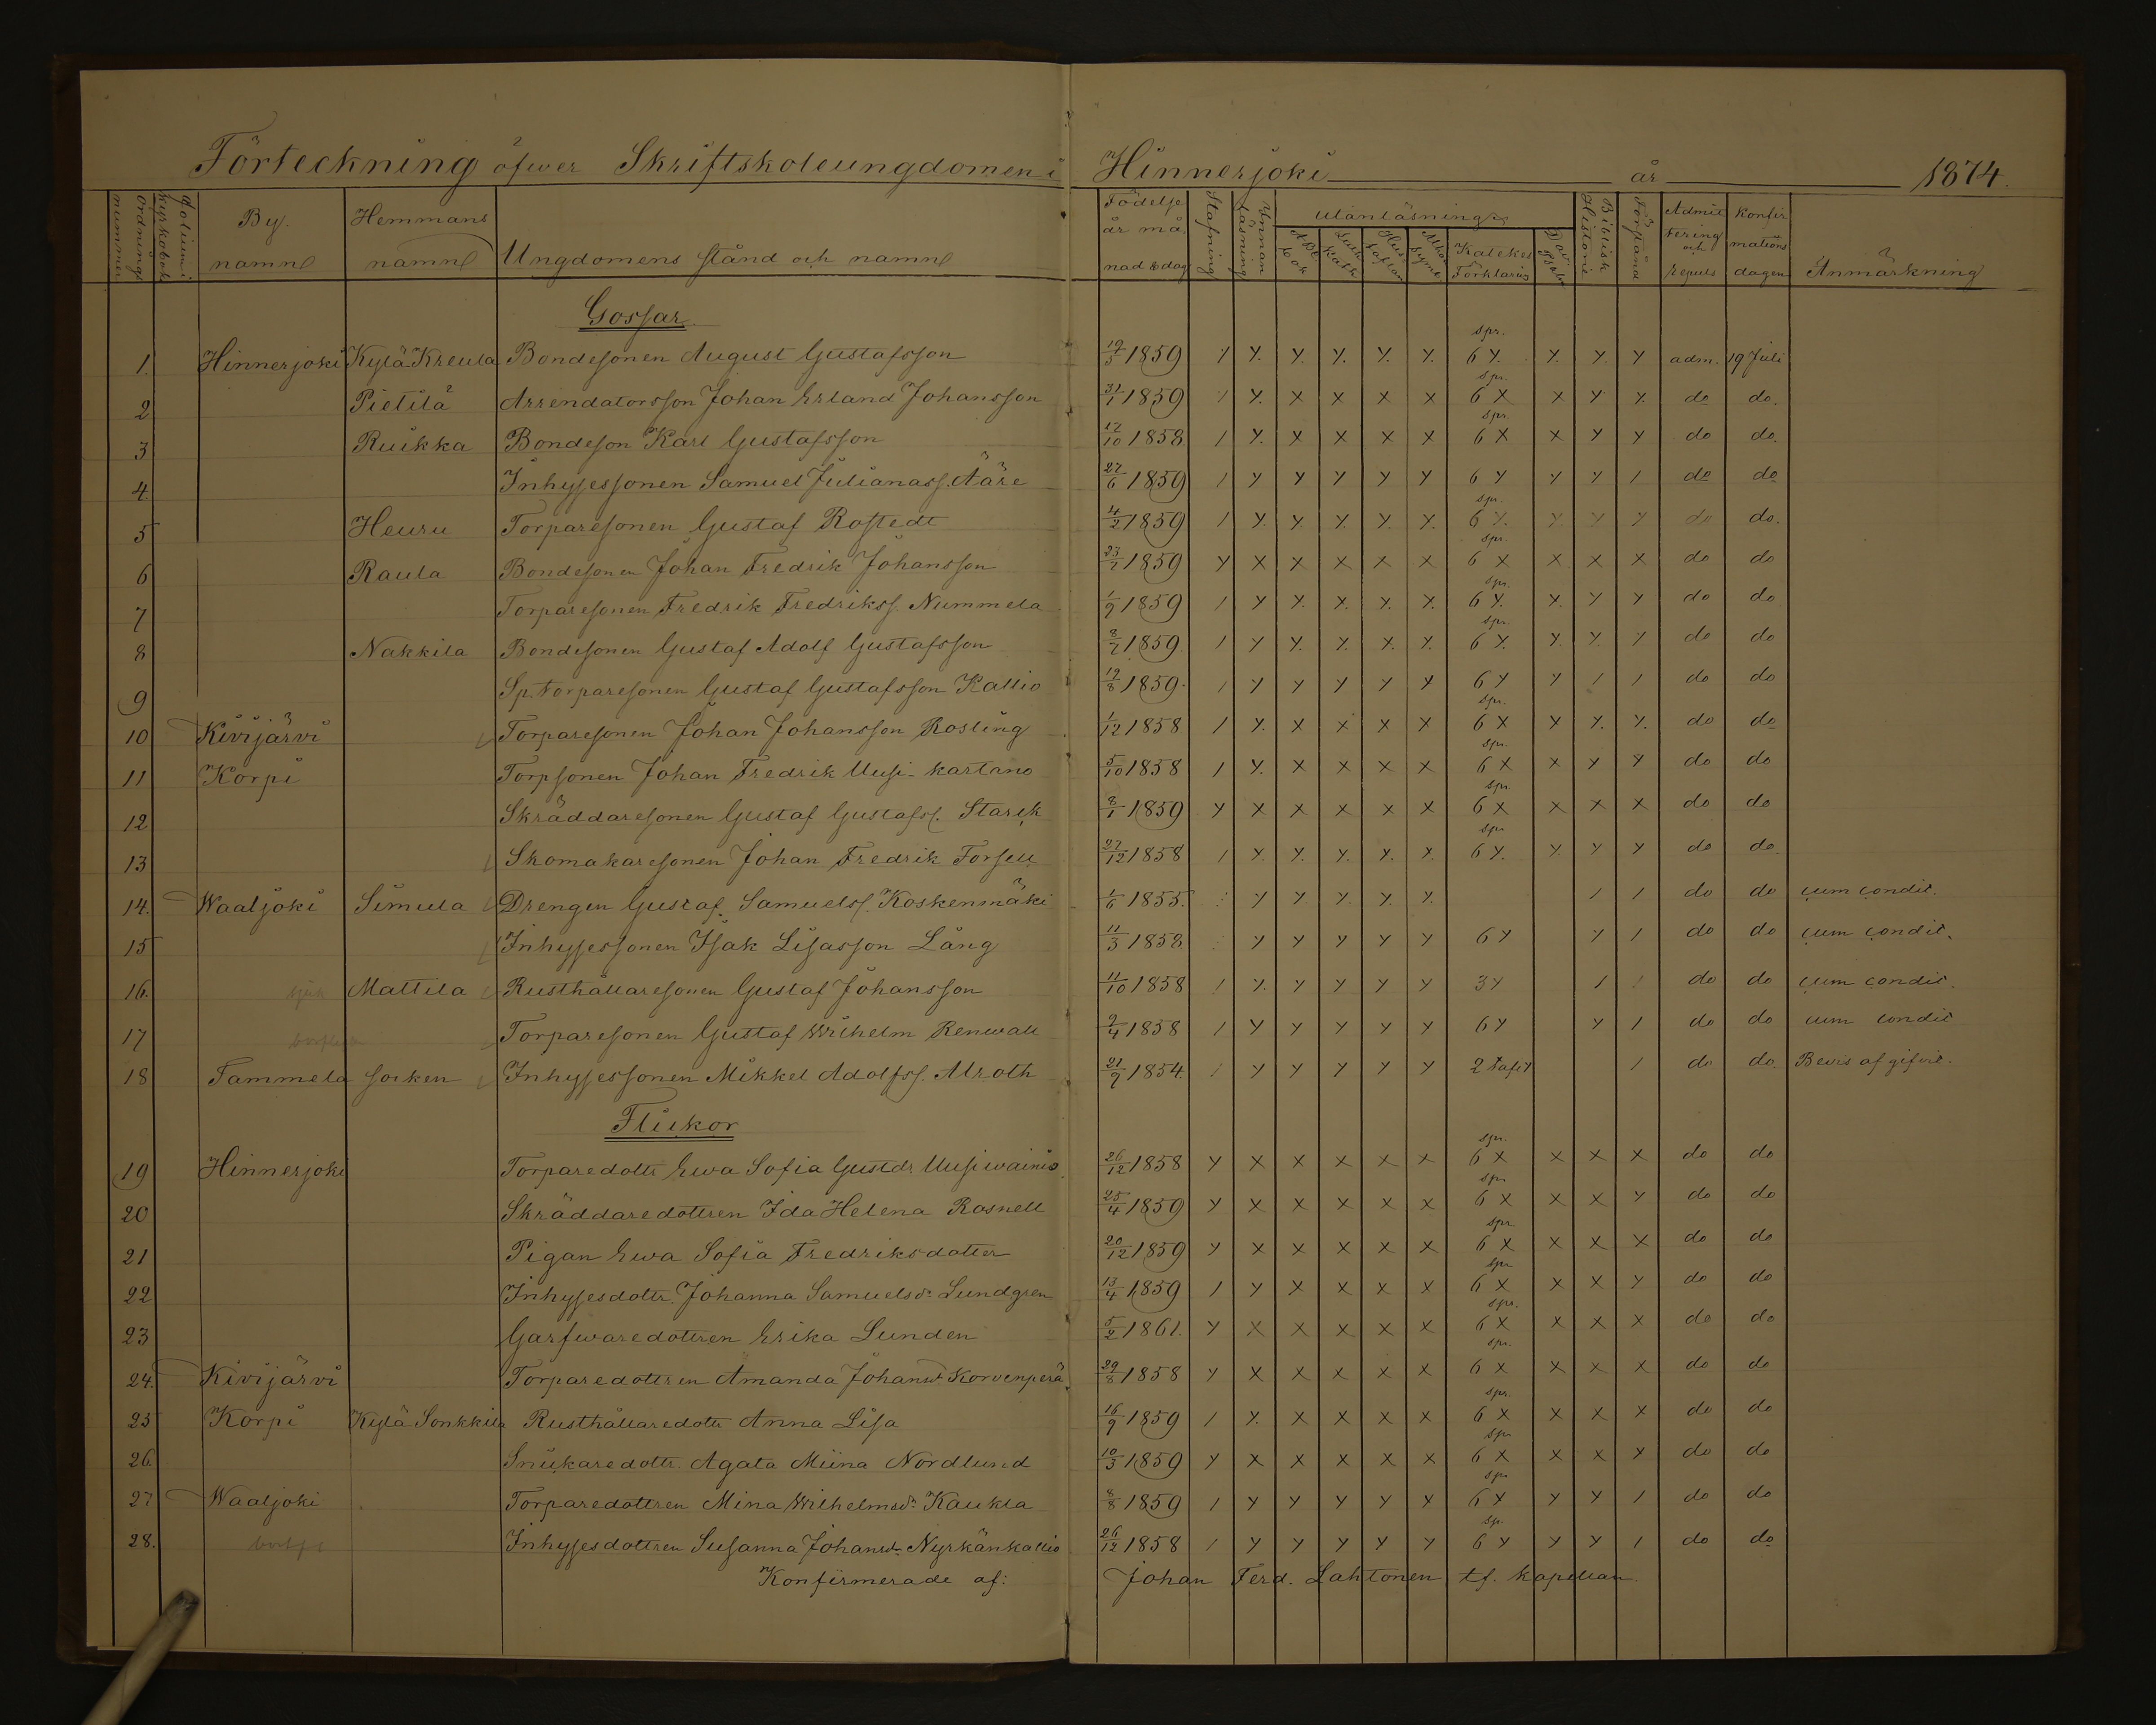 Förteckning öfwer Skriftskoleungdomen i Hinnerjoki år 1874.
Ordnings nummer Folium i kyrkobok By namn Hemmans namn Ungdomens stånd och namn Födelse år må nad & dag Stafning Innan läsning Utanläsning ABC bok Luth kath Hus taflan Athan symb Kateket Förklaring Dav. psalm Biblisk Historie Förstånd Admit tering och repuls Konfir mations dagen Anmärkning
Gossar
1. Hinnerjoki Kylä Kreula Bondesonen August Gustafsson 19/5 1859 / y. y. y. y. y. spr. 6 y. y. y. y adm. 19 Juli
2 Pietilä Arrendatorsson Johan Erland Johansson 31/1 1859 / y. x x x x spr. 6 x x y y. do do.
3 Ruikka Bondeson Karl Gustafsson 17/10 1858 / y. x x x x spr. 6 x x y y do do.
4. Inhysessonen Samuel Julianass. Ääre 27/6 1859 / y y y y y 6 y y y / do do
5 Heuru Torparesonen Gustaf Rostedt 4/2 1859 / y. y. y. y. y. spr. 6 y. y. y y do do.
6 Raula Bondesonen Johan Fredrik Johansson 23/7 1859 y x x x x x spr. 6 x x x x do do
7 Torparesonen Fredrik Fredrikss. Nummela 1/9 1859 / y y. y. y. y. spr. 6 y. y. y y do do
8 Nakkila Bondesonen Gustaf Adolf Gustafsson 8/7 1859 / y y. y. y. y. spr. 6 y. y. y. y do do
9 Sp. torparesonen Gustaf Gustafsson Kallio 19/8 1859. / y y y y y 6 y y / / do do
10 Kivijärvi Torparesonen Johan Johansson Rosling 1/12 1858 / y. x x x x spr. 6 x y y. y. do do
11 Korpi Torpsonen Johan Fredrik Uusi-kartano 5/10 1858 / y. x x x x spr. 6 x x y y do do
12 Skräddaresonen Gustaf Gustafss. Starck 8/1 1859 y x x x x x spr. 6 x x x x do do
13 Skomakaresonen Johan Fredrik Forsell 27/12 1858 / y. y. y. y. y. spr 6 y. y. y y do do.
14. Waaljoki Simula Drengen Gustaf Samuelss. Koskenmäki 1/6 1855. y y y y. y. / / do do cum condit.
15 Inhysessonen Isak Lisasson Lång 11/3 1858 y y y y y 6 y y / do do cum condit.
16. sjuk Mattila Rusthållaresonen Gustaf Johansson 11/10 1858 / y. y y y y 3 y / / do do cum condit.
17 Torparesonen Gustaf Wilhelm Renwall 9/4 1858 / y y y y y 6 y y / do do cum condit
18 Tammela socken Inhysessonen Mikkel Adolfss. Alroth 21/9 1854. / y y y y y 2 / do do. Bevis af gifvit.
Flickor
19 Hinnerjoki Torparedottr Ewa Sofia Gustdr. Uusiwainio 26/12 1858 y x x x x x spr. 6 x x x x do do
20 Skräddaredottren Ida Helena Rosnell 25/4 1859 y x x x x x spr 6 x x x y do do
21 Pigan Ewa Sofia Fredriksdotter 20/12 1859 y x x x x x spr. 6 x x x x do do
22 Inhysesdottr. Johanna Samuelsdr. Lundgren 13/4 1859 / y x x x x spr 6 x x x y do do
23 Garfwaredottren Erika Lunden 5/2 1861. y x x x x x spr. 6 x x x x do do
24. Kivijärvi Torparedottren Amanda Johansdr Korvenperä 29/8 1858 y x x x x x spr. 6 x x x x do do
25 Korpi Kylä Sonkkila Rusthållaredottr Anna Lisa 16/9 1859 / y. x x x x spr. 6 x x x x do do
26. Snickaredottr. Agata Miina Nordlund 10/3 1859 y x x x x x spr 6 x x x y do do
27 Waaljoki Torparedottren Mina Wilhelmsdr. Kaukla 8/8 1859 / y y y y y spr 6 y y y / do do
28. Inhysesdottren Susanna Johansdr. Nyrkänkallio 26/12 1858 / y y y y y sp. 6 y y y / do do
Konfirmerade af: Johan Ferd. Lahtonen, tf. kapellan.